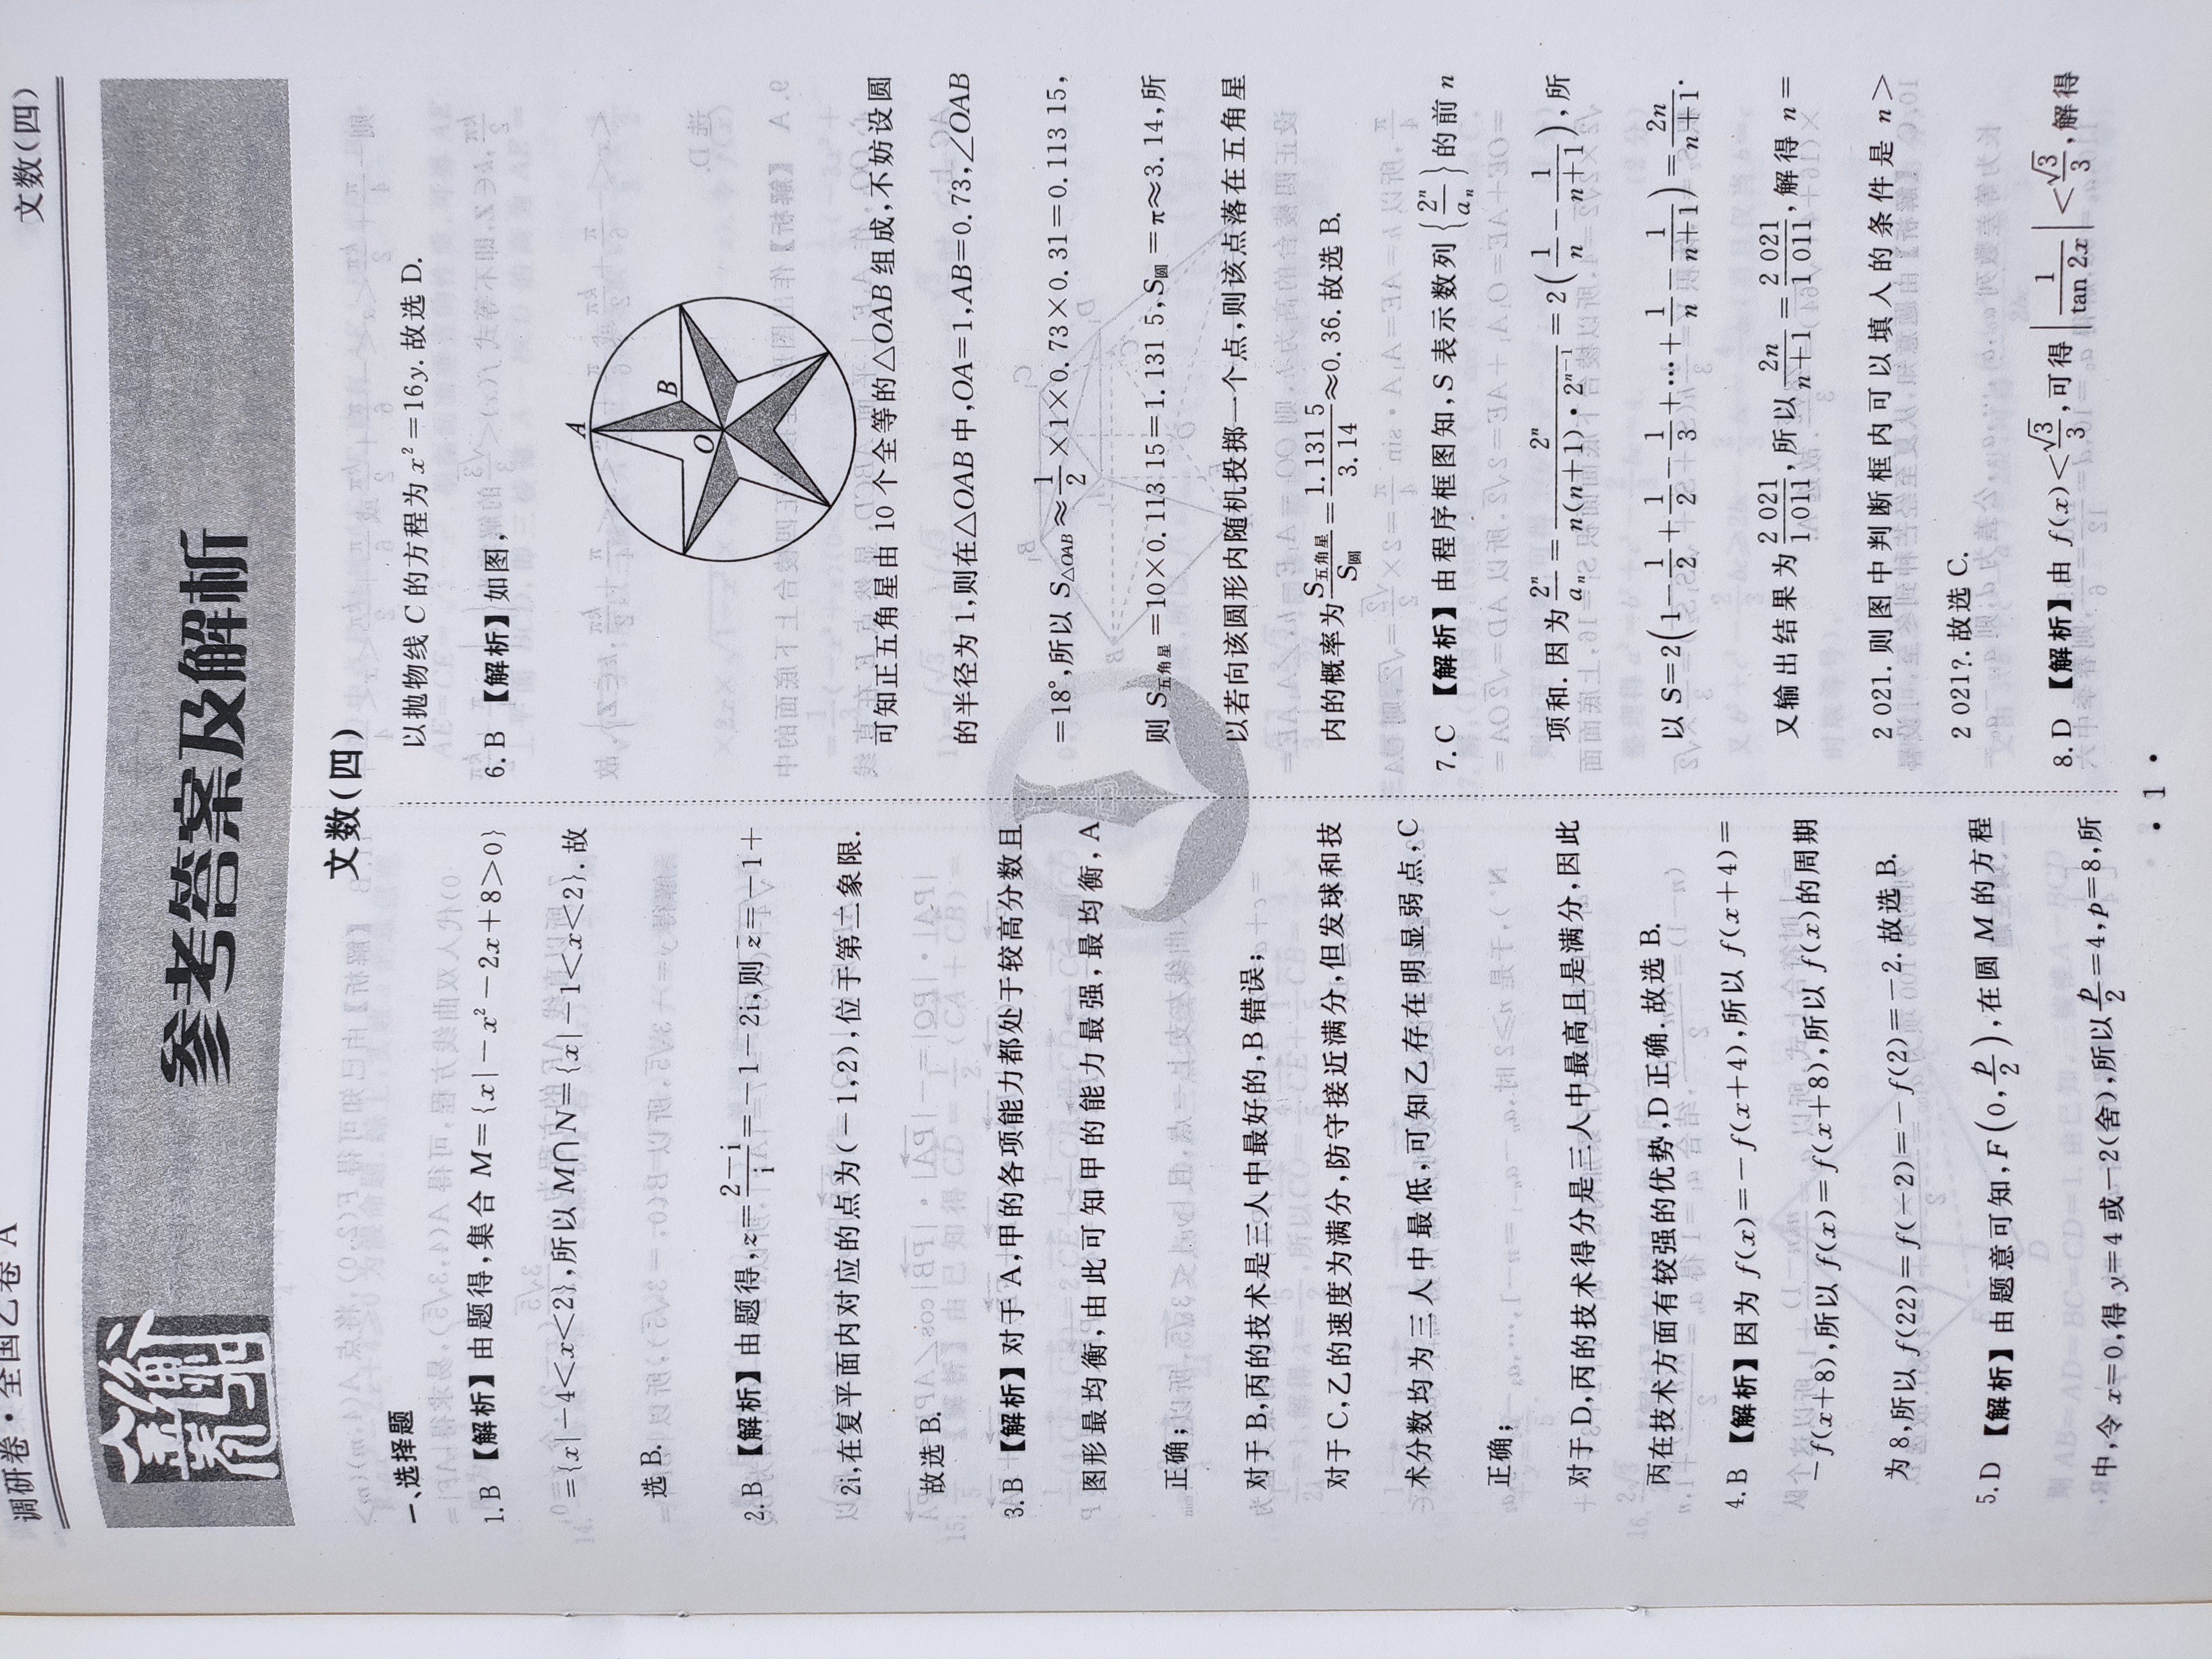 调研卷·全国乙卷A
文数(四)
金卷
参考答案及解析
文数(四)
一、选择题
1. B 【解析】由题得,集合 M={x|-x²-2x+8>0}
={x|-4<x<2},所以 M∩N={x|-1<x<2}. 故
选 B.
2. B 【解析】由题得,z=\frac{2-i}{i}=-1-2i,则 \overline{z}=-1+
2i,在复平面内对应的点为(-1,2),位于第二象限.
故选 B.
3. B 【解析】对于 A,甲的各项能力都处于较高分数且
图形最均衡,由此可知甲的能力最强,最均衡,A
正确;
对于 B,丙的技术是三人中最好的,B 错误;
对于 C,乙的速度为满分,防守接近满分,但发球和技
术分数均为三人中最低,可知乙存在明显弱点,C
正确;
对于 D,丙的技术得分是三人中最高且是满分,因此
丙在技术方面有较强的优势,D 正确. 故选 B.
4. B 【解析】因为 f(x)=-f(x+4),所以 f(x+4)=
-f(x+8),所以 f(x)=f(x+8),所以 f(x)的周期
为 8,所以 f(22)=f(-2)=-f(2)=-2. 故选 B.
5. D 【解析】由题意可知,F(0,\frac{p}{2}),在圆 M 的方程
中,令 x=0,得 y=4 或-2(舍),所以\frac{p}{2}=4,p=8,所
以抛物线 C 的方程为 x²=16y. 故选 D.
6. B 【解析】如图,
A
B
O
可知正五角星由 10 个全等的△OAB 组成,不妨设圆
的半径为 1,则在△OAB 中,OA=1,AB=0.73,∠OAB
=18°,所以 S△OAB≈\frac{1}{2}×1×0.73×0.31=0.113 15,
则 S五角星=10×0.113 15=1.131 5,S圆=π≈3.14,所
以若向该圆形内随机投掷一个点,则该点落在五角星
内的概率为\frac{S五角星}{S圆}=\frac{1.131 5}{3.14}≈0.36. 故选 B.
7. C 【解析】由程序框图知,S 表示数列{\frac{2ⁿ}{aₙ}}的前 n
项和. 因为\frac{2ⁿ}{aₙ}=\frac{2ⁿ}{n(n+1)·2ⁿ⁻¹}=2(\frac{1}{n}-\frac{1}{n+1}),所
以 S=2(1-\frac{1}{2}+\frac{1}{2}-\frac{1}{3}+…+\frac{1}{n}-\frac{1}{n+1})=\frac{2n}{n+1}.
又输出结果为\frac{2 021}{1 011},所以\frac{2n}{n+1}=\frac{2 021}{1 011},解得 n=
2 021. 则图中判断框内可以填入的条件是 n>
2 021?. 故选 C.
8. D 【解析】由 f(x)<\frac{√3}{3},可得|\frac{1}{tan 2x}|<\frac{√3}{3},解得
· 1 ·